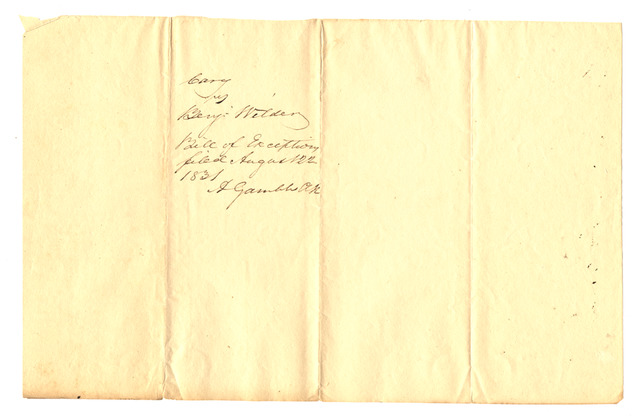 Cary
vs
Benj: Wilder
Bill of Exception
filed August 22
1831
A Gamble Clk